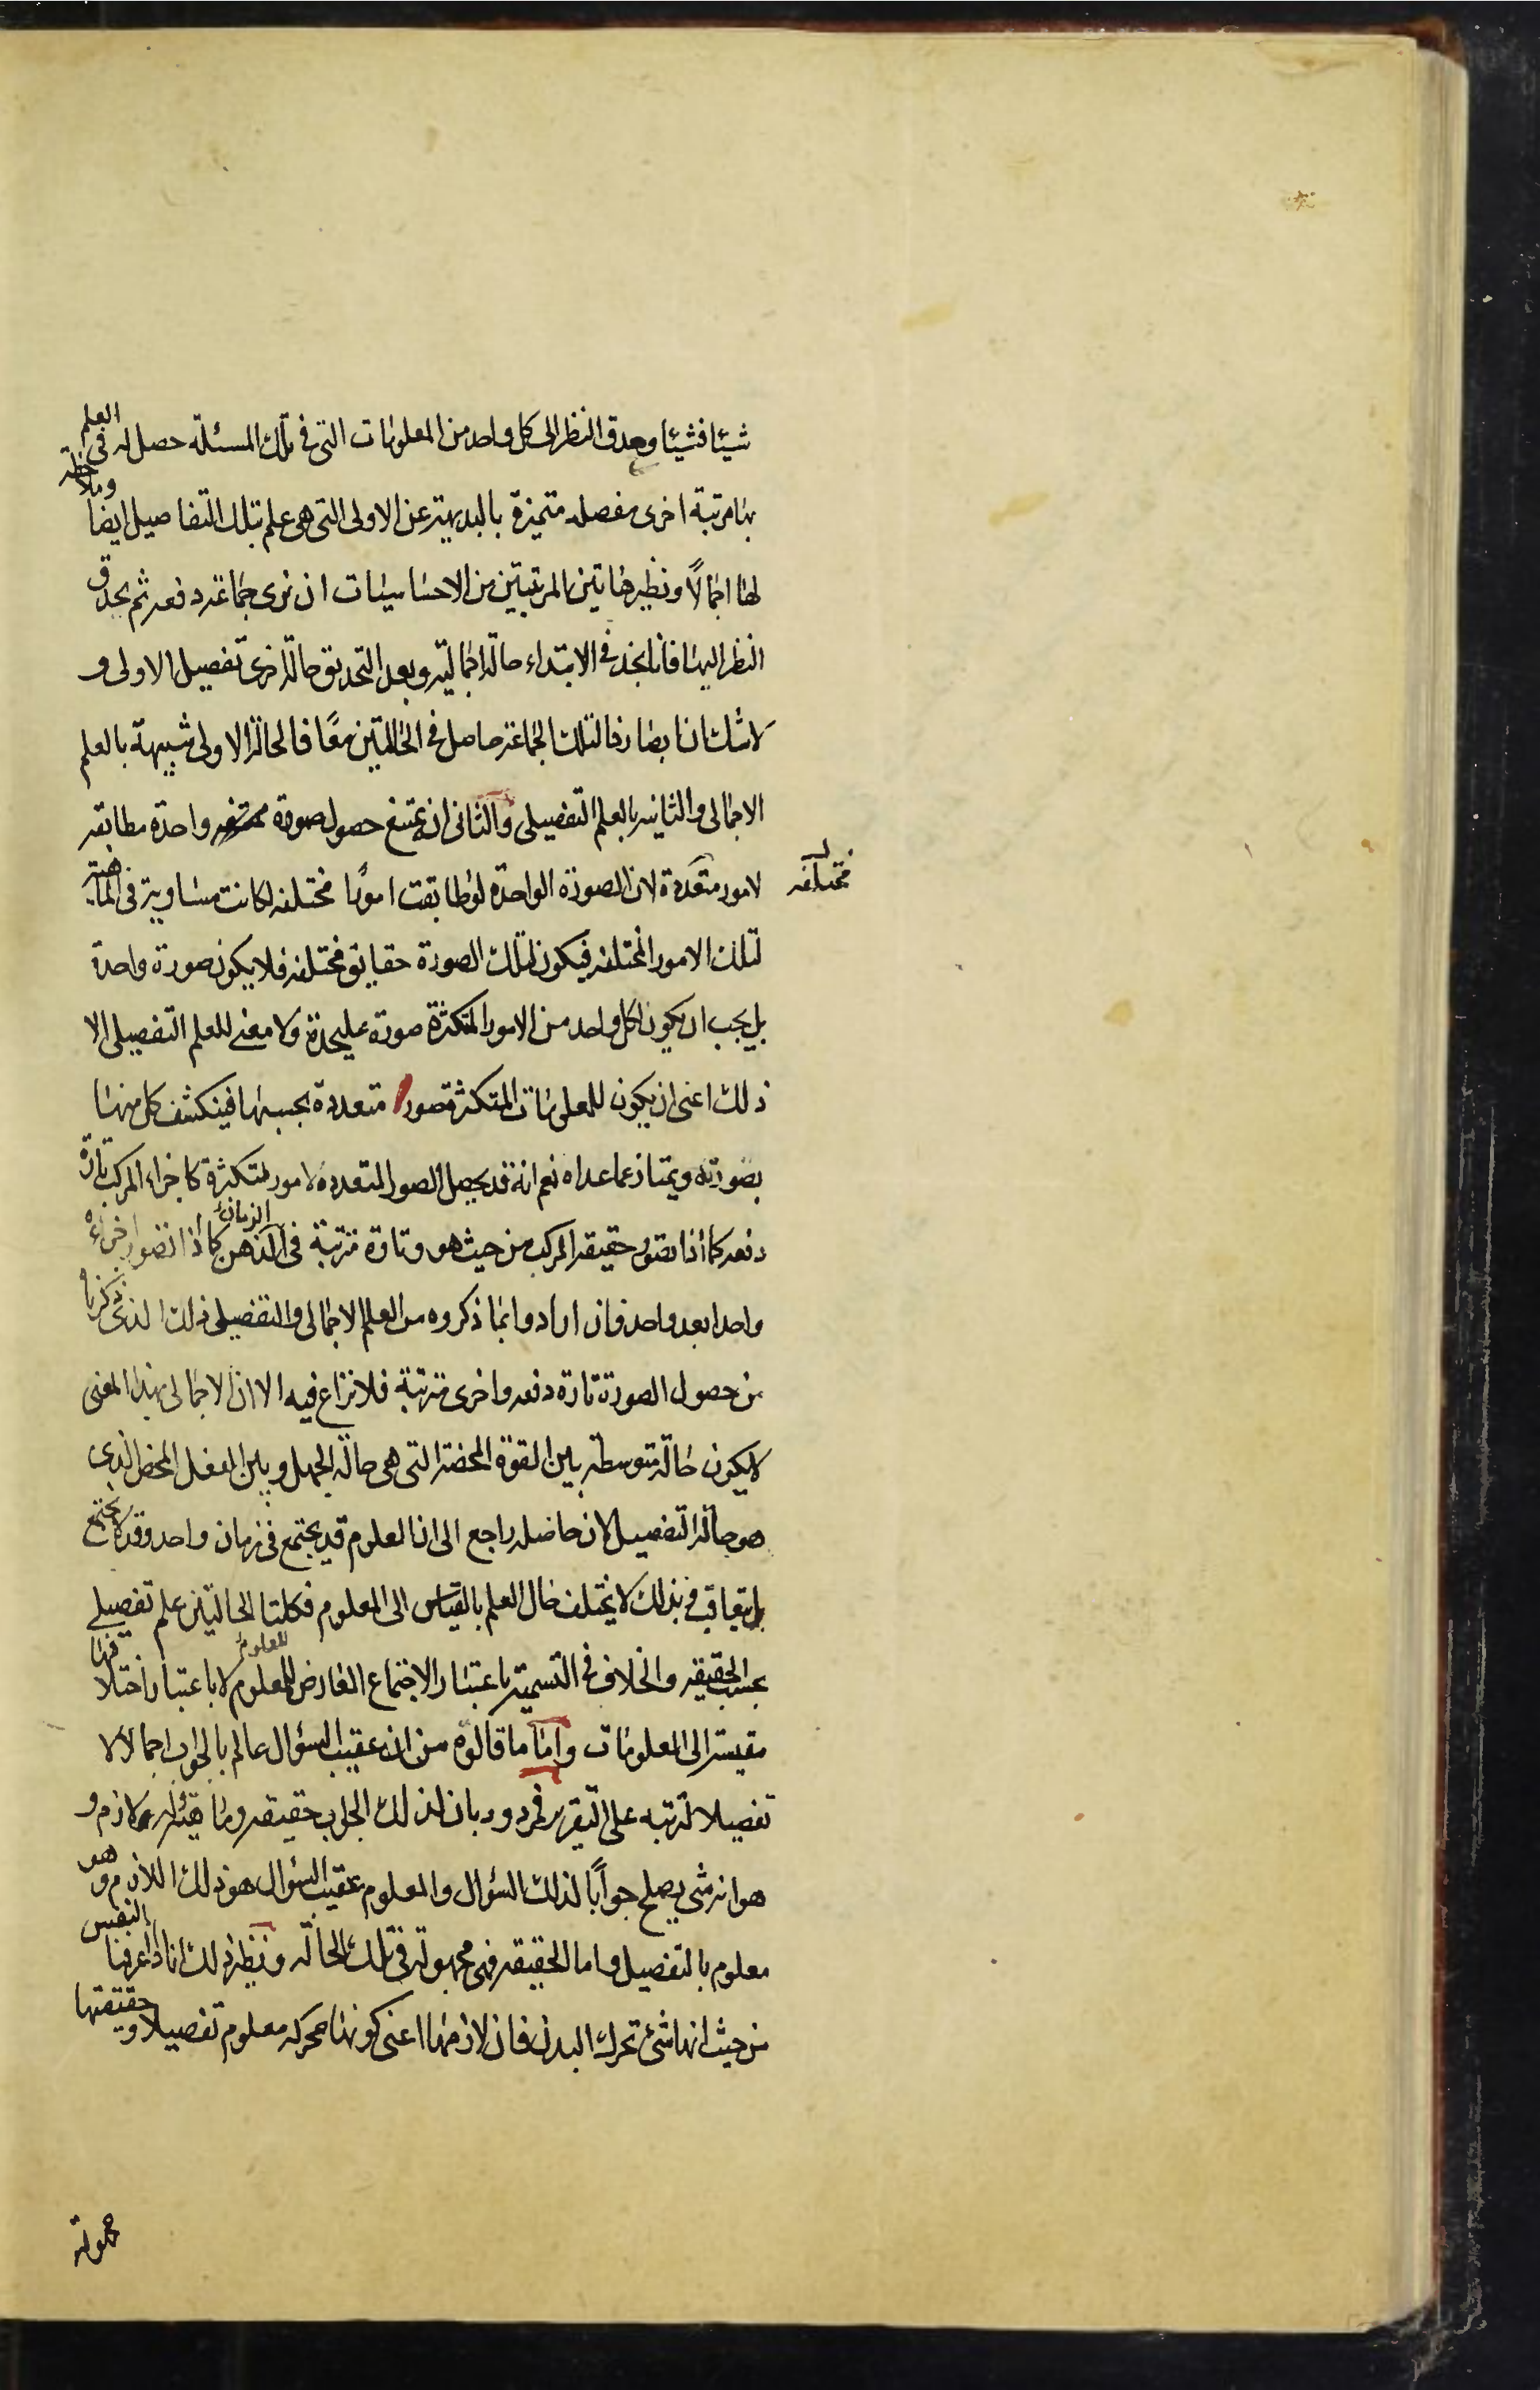 شيئا فشيئا وحدق النظر الى كل واحد من المعلومات التى فى تلك المسئلة حصل له فى العلم
بها مرتبة اخرى مفصله متميزة بالبديهة عن الاولى التى هى علم بتلك التفاصيل ايضا وملاحظه
لها اجمالاً ونظير هاتين المرتبتين من الاحساسيات ان نرى جماعة دفعه ثم نحدق
النظر اليها فانا نجد فى الابتداء حالة اجمالية وبعد التحديق حالة اخرى تفصيل الاولى و
لا شك ان ابصارنا لتلك الجماعة حاصل فى الحالتين معًا فالحالة الاولى شبيهة بالعلم
الاجمالى والثانيه بالعلم التفصيلى والثانى انه يمتنع حصول صورة واحدة مطابقه
لامور متعددة لان الصورة الواحدة لو طابقت امورًا مختلفه لكانت مساوية فى الماهية
مختلفه
لتلك الامور المختلفه فيكون لتلك الصورة حقايق مختلفه فلا يكون صورة واحدة
بل يجب ان يكون لكل واحد من الامور المتكثرة صورة عليحدة ولا معنى للعلم التفصيلى الا
ذلك اعنى ان يكون للمعلومات المتكثرة صور متعددة بحسبها فينكشف كل منها
بصورته ويمتاز عما عداه نعم انه قد يحصل الصور المتعدده لامور متكثرة كاجزاء المركب تارة
دفعه كما اذا تصور حقيقه المركب من حيث هو وتارة مترتبة فى الذهن الزمان كما اذا تصور اجزاءه
واحدا بعد واحد فان ارادوا بما ذكروه من العلم الاجمالى والتفصيلى ذلك الذى ذكرناه
من حصول الصورة تارة دفعه واخرى مترتبة فلا نزاع فيه الا ان الاجمالى بهذا المعنى
لا يكون حالة متوسطة بين القوة المحضة التى هى حالة الجهل وبين الفعل المحض الذى
هو حالة التفصيل لان حاصله راجع الى ان العلوم قد يجتمع فى زمان واحد وقد لا يجتمع
بل يتعاقب فى بذلك لا يختلف حال العلم بالقياس الى المعلوم فكلتا الحالتين علم تفصيلى
بحسب الحقيقه والخلاف فى التسمية باعتبار الاجتماع العارض للمعلوم للعلوم لا باعتبار اختلافها
مقيسة الى المعلومات واما ما قالوه من انه عقيب السؤال عالم بالجواب اجمالا لا
تفصيلا لترتبه على التقرير فمردود بان لذلك الجواب حقيقه وماهية وله لازم و
هو انه شى يصلح جوابًا لذلك السؤال والمعلوم عقيب السؤال هو ذلك اللازم وهو
معلوم بالتفصيل واما الحقيقه فهى مجهولة فى تلك الحالة ونظير ذلك انا اذا عرفنا النفس
من حيث انها شئ تحرك البدن فان لازمها اعنى كونها محركه معلوم تفصيلا وحقيقتها
مجهولة